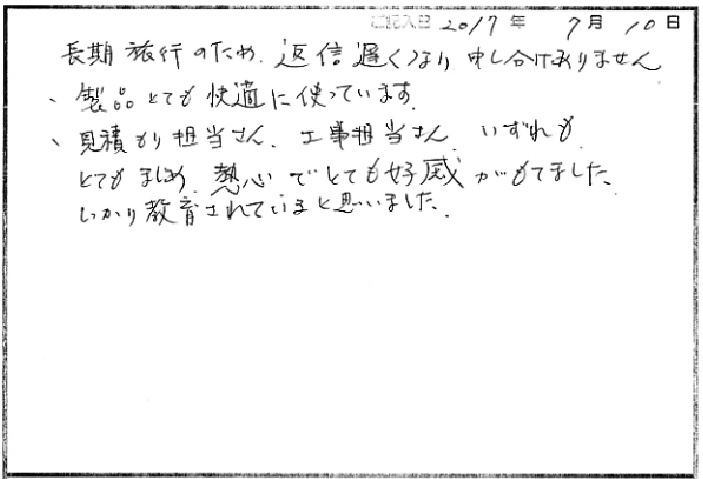 ご記入日 2017年 7月 10日
長期旅行のため、返信遅くなり申し分けありません
、製品とても快適に使っています。
、見積もり担当さん、工事担当さん、いずれも
とてもまじめ、熱心でとても好感がもてました。
しっかり教育されていると思いました。